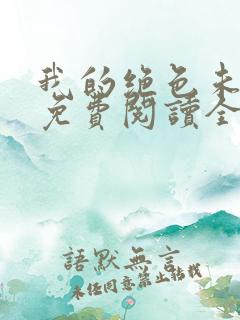 我的绝色未
免費閱讀全
語默無言
未经同意禁止转载